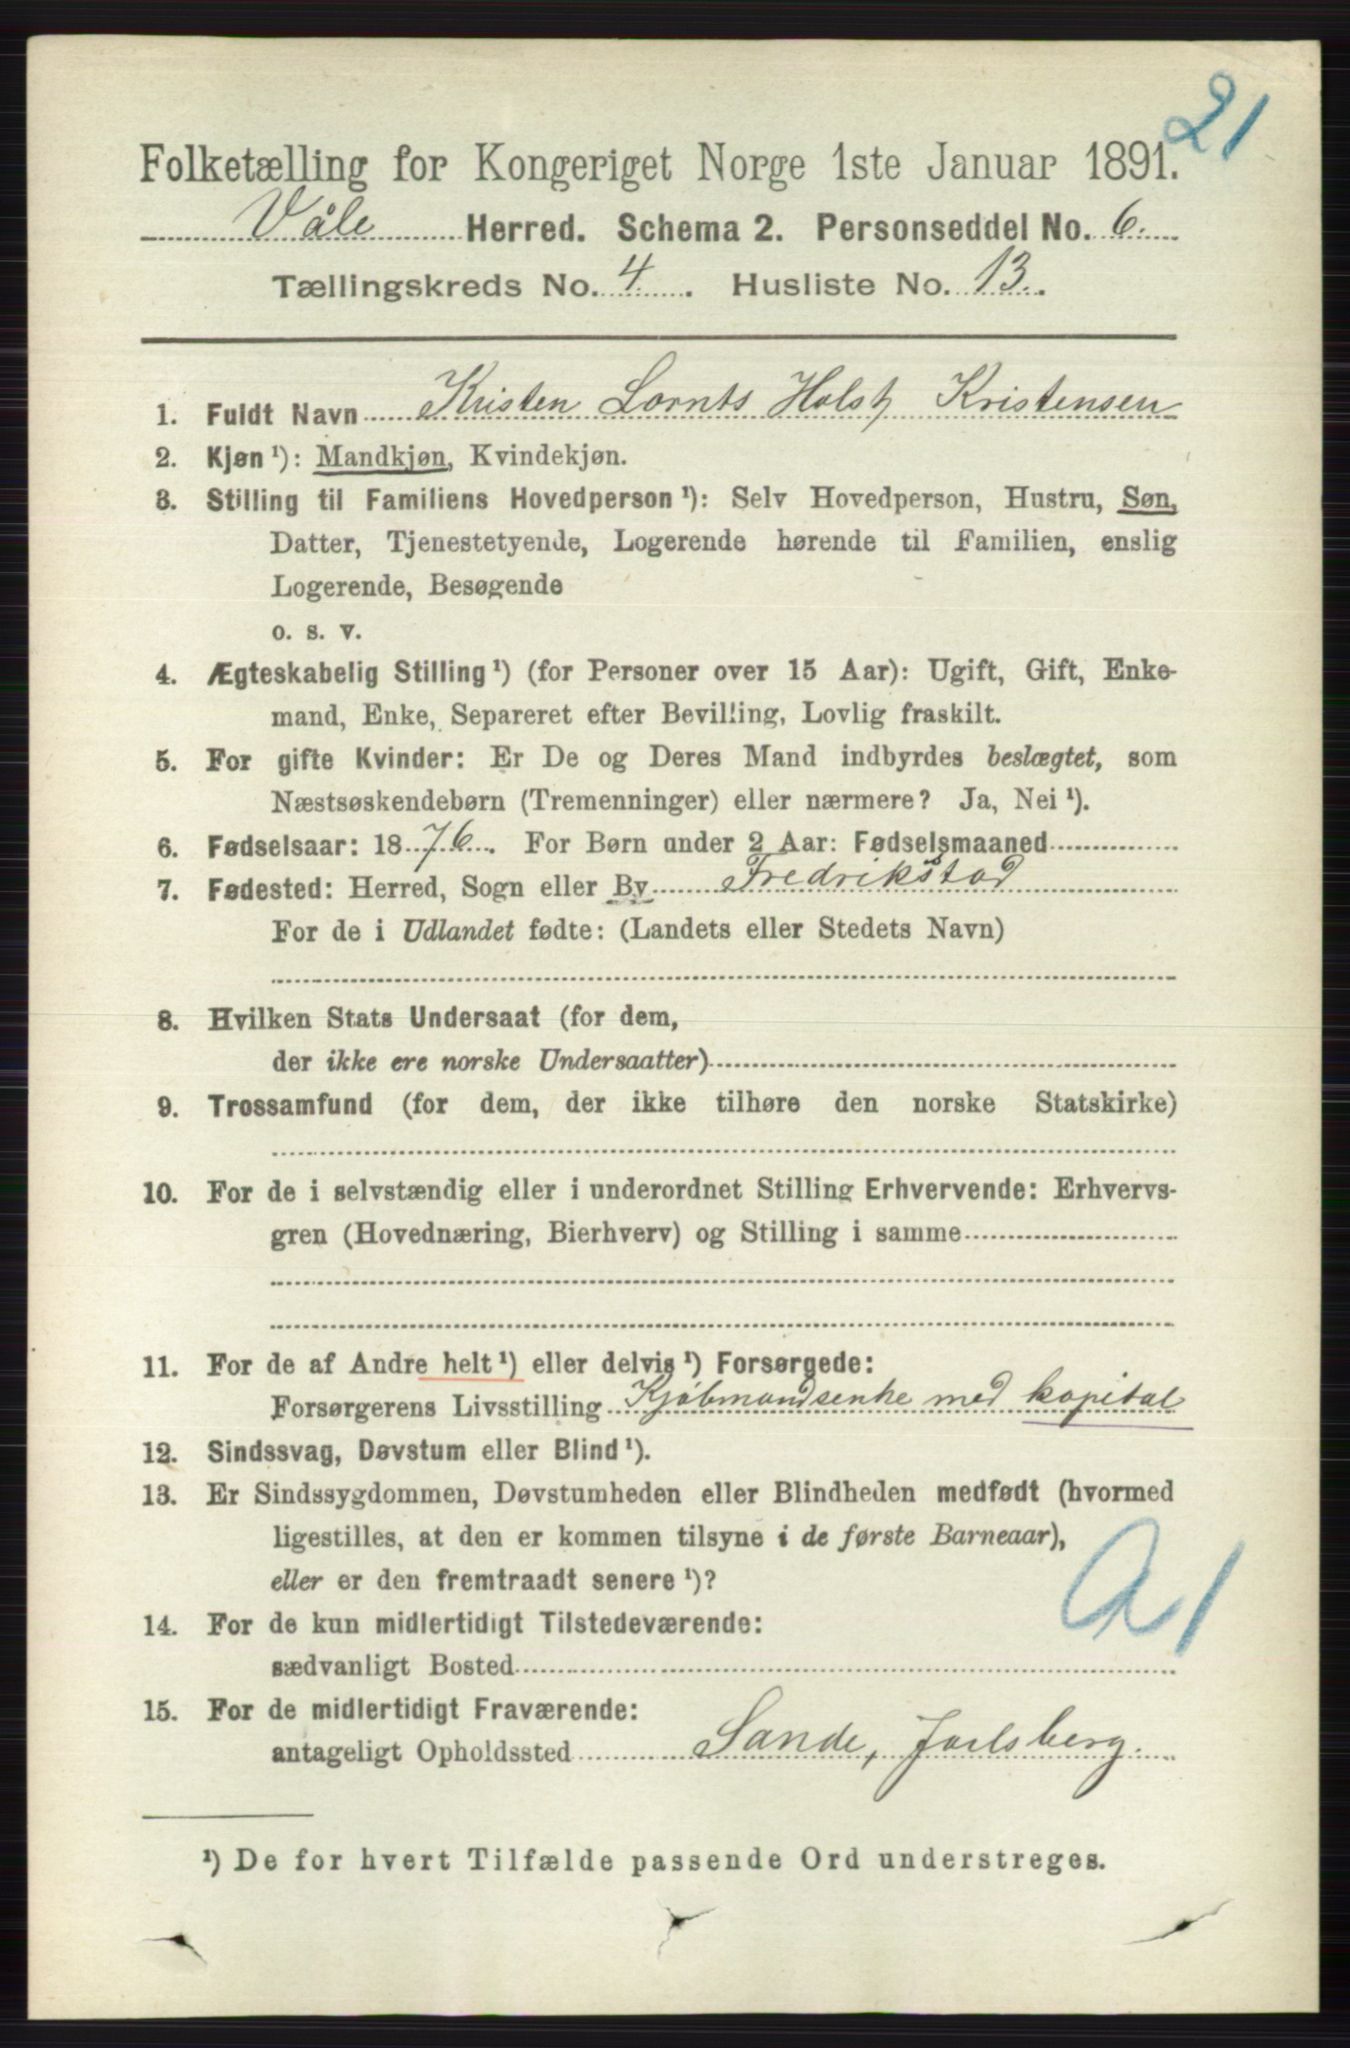 21
Folketælling for Kongeriget Norge 1ste Januar 1891.
Våle Herred. Schema 2. Personseddel No. 6.
Tællingskreds No. 4. Husliste No. 13.
1. Fuldt Navn Kristen Lornts Holst Kristensen
2. Kjøn ¹): Mandkjøn, Kvindekjøn.
3. Stilling til Familiens Hovedperson ¹): Selv Hovedperson, Hustru, Søn,
Datter, Tjenestetyende, Logerende hørende til Familien, enslig
Logerende, Besøgende
o. s. v.
4. Ægteskabelig Stilling ¹) (for Personer over 15 Aar): Ugift, Gift, Enke-
mand, Enke, Separeret efter Bevilling, Lovlig fraskilt.
5. For gifte Kvinder: Er De og Deres Mand indbyrdes beslægtet, som
Næstsøskendebørn (Tremenninger) eller nærmere? Ja, Nei ¹).
6. Fødselsaar: 1876. For Børn under 2 Aar: Fødselsmaaned
7. Fødested: Herred, Sogn eller By Fredrikstad
For de i Udlandet fødte: (Landets eller Stedets Navn)
8. Hvilken Stats Undersaat (for dem,
der ikke ere norske Undersaatter)
9. Trossamfund (for dem, der ikke tilhøre den norske Statskirke)
10. For de i selvstændig eller i underordnet Stilling Erhvervende: Erhvervs-
gren (Hovednæring, Bierhverv) og Stilling i samme
11. For de af Andre helt ¹) eller delvis ¹) Forsørgede:
Forsørgerens Livsstilling Kjøbmandsenke med kapital
12. Sindssvag, Døvstum eller Blind ¹).
13. Er Sindssygdommen, Døvstumheden eller Blindheden medfødt (hvormed
ligestilles, at den er kommen tilsyne i de første Barneaar),
eller er den fremtraadt senere ¹)?
14. For de kun midlertidigt Tilstedeværende:
sædvanligt Bosted
15. For de midlertidigt Fraværende:
antageligt Opholdssted Sande, Jarlsberg.
¹) De for hvert Tilfælde passende Ord understreges.